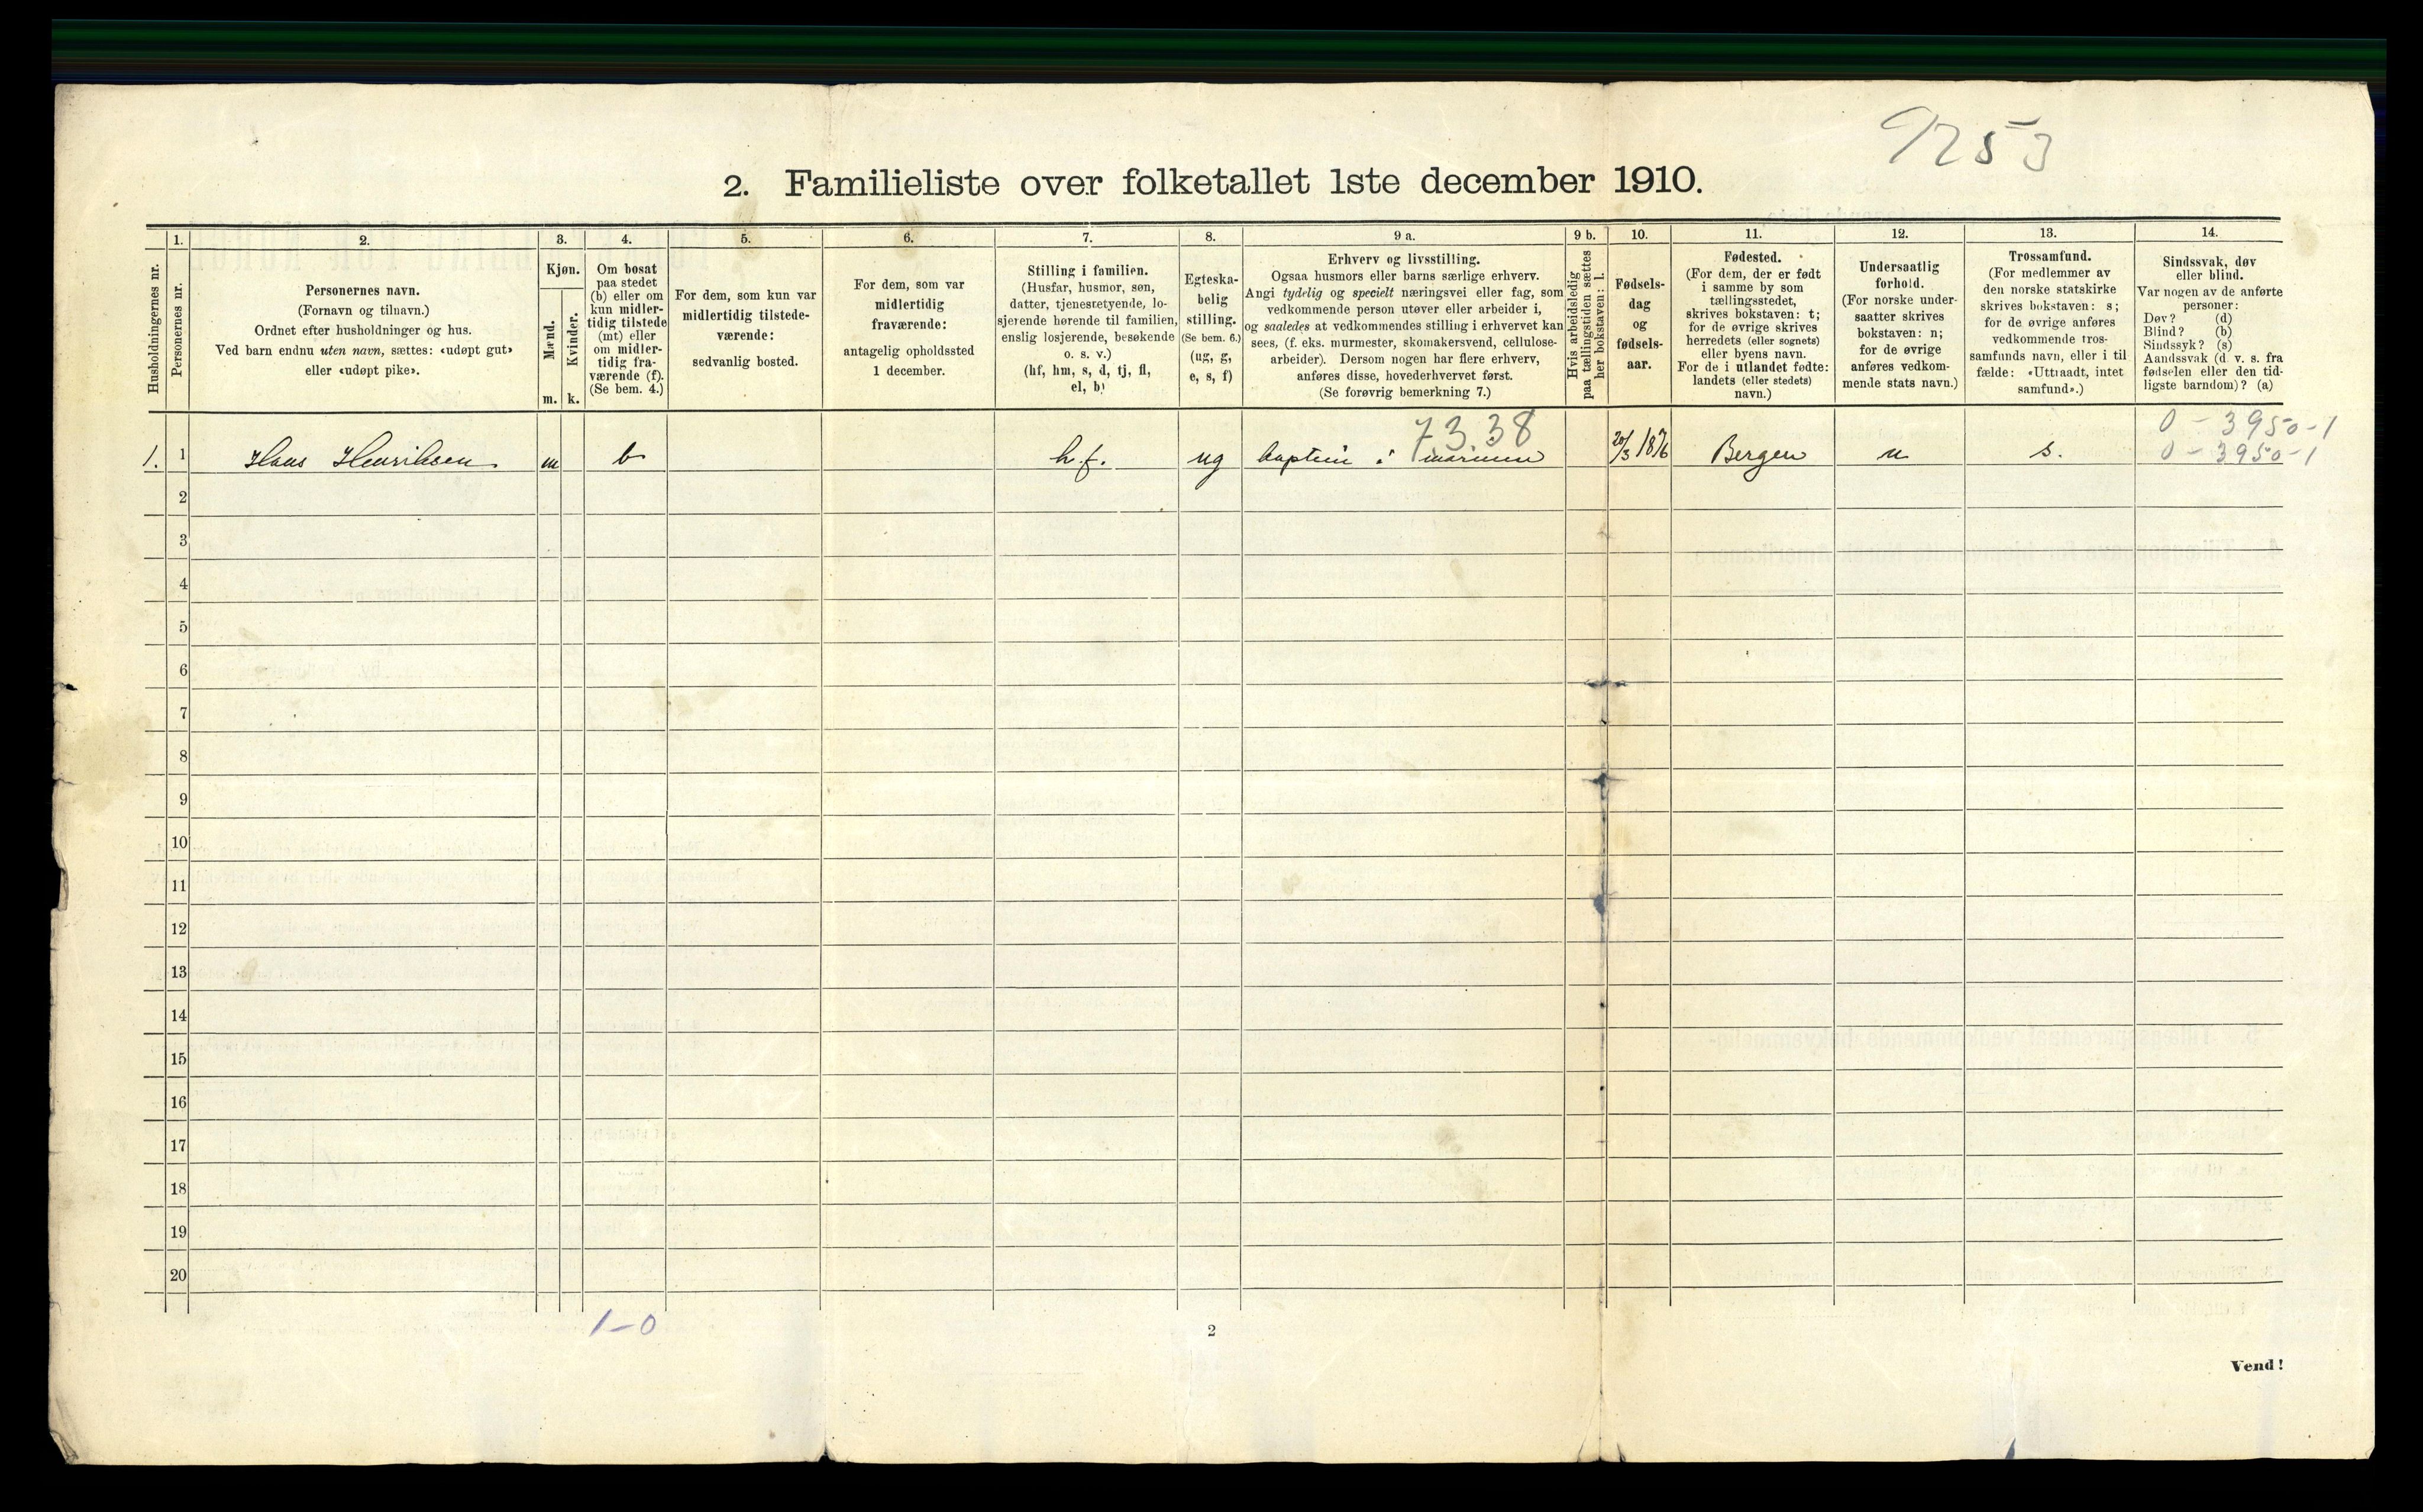 9253
2. Familieliste over folketallet 1ste december 1910.
1. 2. 3. 4. 5. 6. 7. 8. 9 a. 9 b. 10. 11. 12. 13. 14.
Husholdningernes nr.
Personernes nr.
Personernes navn.
(Fornavn og tilnavn.)
Ordnet efter husholdninger og hus.
Ved barn endnu uten navn, sættes: «udøpt gut»
eller «udøpt pike».
Kjøn.
Mænd.
Kvinder.
m. k.
Om bosat
paa stedet
(b) eller om
kun midler-
tidig tilstede
(mt) eller
om midler-
tidig fra-
værende (f).
(Se bem. 4.)
For dem, som kun var
midlertidig tilstede-
værende:
sedvanlig bosted.
For dem, som var
midlertidig
fraværende:
antagelig opholdssted
1 december.
Stilling i familien.
(Husfar, husmor, søn,
datter, tjenestetyende, lo-
sjerende hørende til familien,
enslig losjerende, besøkende
o. s. v.)
(hf, hm, s, d, tj, fl,
el, b)
Egteska-
belig
stilling.
(Se bem. 6.)
(ug, g,
e, s, f)
Erhverv og livsstilling.
Ogsaa husmors eller barns særlige erhverv.
Angi tydelig og specielt næringsvei eller fag, som
vedkommende person utøver eller arbeider i,
og saaledes at vedkommendes stilling i erhvervet kan
sees, (f. eks. murmester, skomakersvend, cellulose-
arbeider). Dersom nogen har flere erhverv,
anføres disse, hovederhvervet først.
(Se forøvrig bemerkning 7.)
Hvis arbeidsledig
paa tællingstiden sættes
her bokstaven: l.
Fødsels-
dag
og
fødsels-
aar.
Fødested.
(For dem, der er født
i samme by som
tællingsstedet,
skrives bokstaven: t;
for de øvrige skrives
herredets (eller sognets)
eller byens navn.
For de i utlandet fødte:
landets (eller stedets)
navn.)
Undersaatlig
forhold.
(For norske under-
saatter skrives
bokstaven: n;
for de øvrige
anføres vedkom-
mende stats navn.)
Trossamfund.
(For medlemmer av
den norske statskirke
skrives bokstaven: s;
for de øvrige anføres
vedkommende tros-
samfunds navn, eller i til
fælde: «Uttraadt, intet
samfund».)
Sindssvak, døv
eller blind.
Var nogen av de anførte
personer:
Døv? (d)
Blind? (b)
Sindssyk? (s)
Aandssvak (d. v. s. fra
fødselen eller den tid-
ligste barndom)? (a)
73.38
0 - 3950-1
1. 1 Hans Henriksen m b h.f. ug kaptein i marinen 20/3 1876 Bergen n s. 0 - 3950-1
2
3
4
5
6
7
8
9
10
11
12
13
14
15
16
17
18
19
20
1-0
2
Vend!